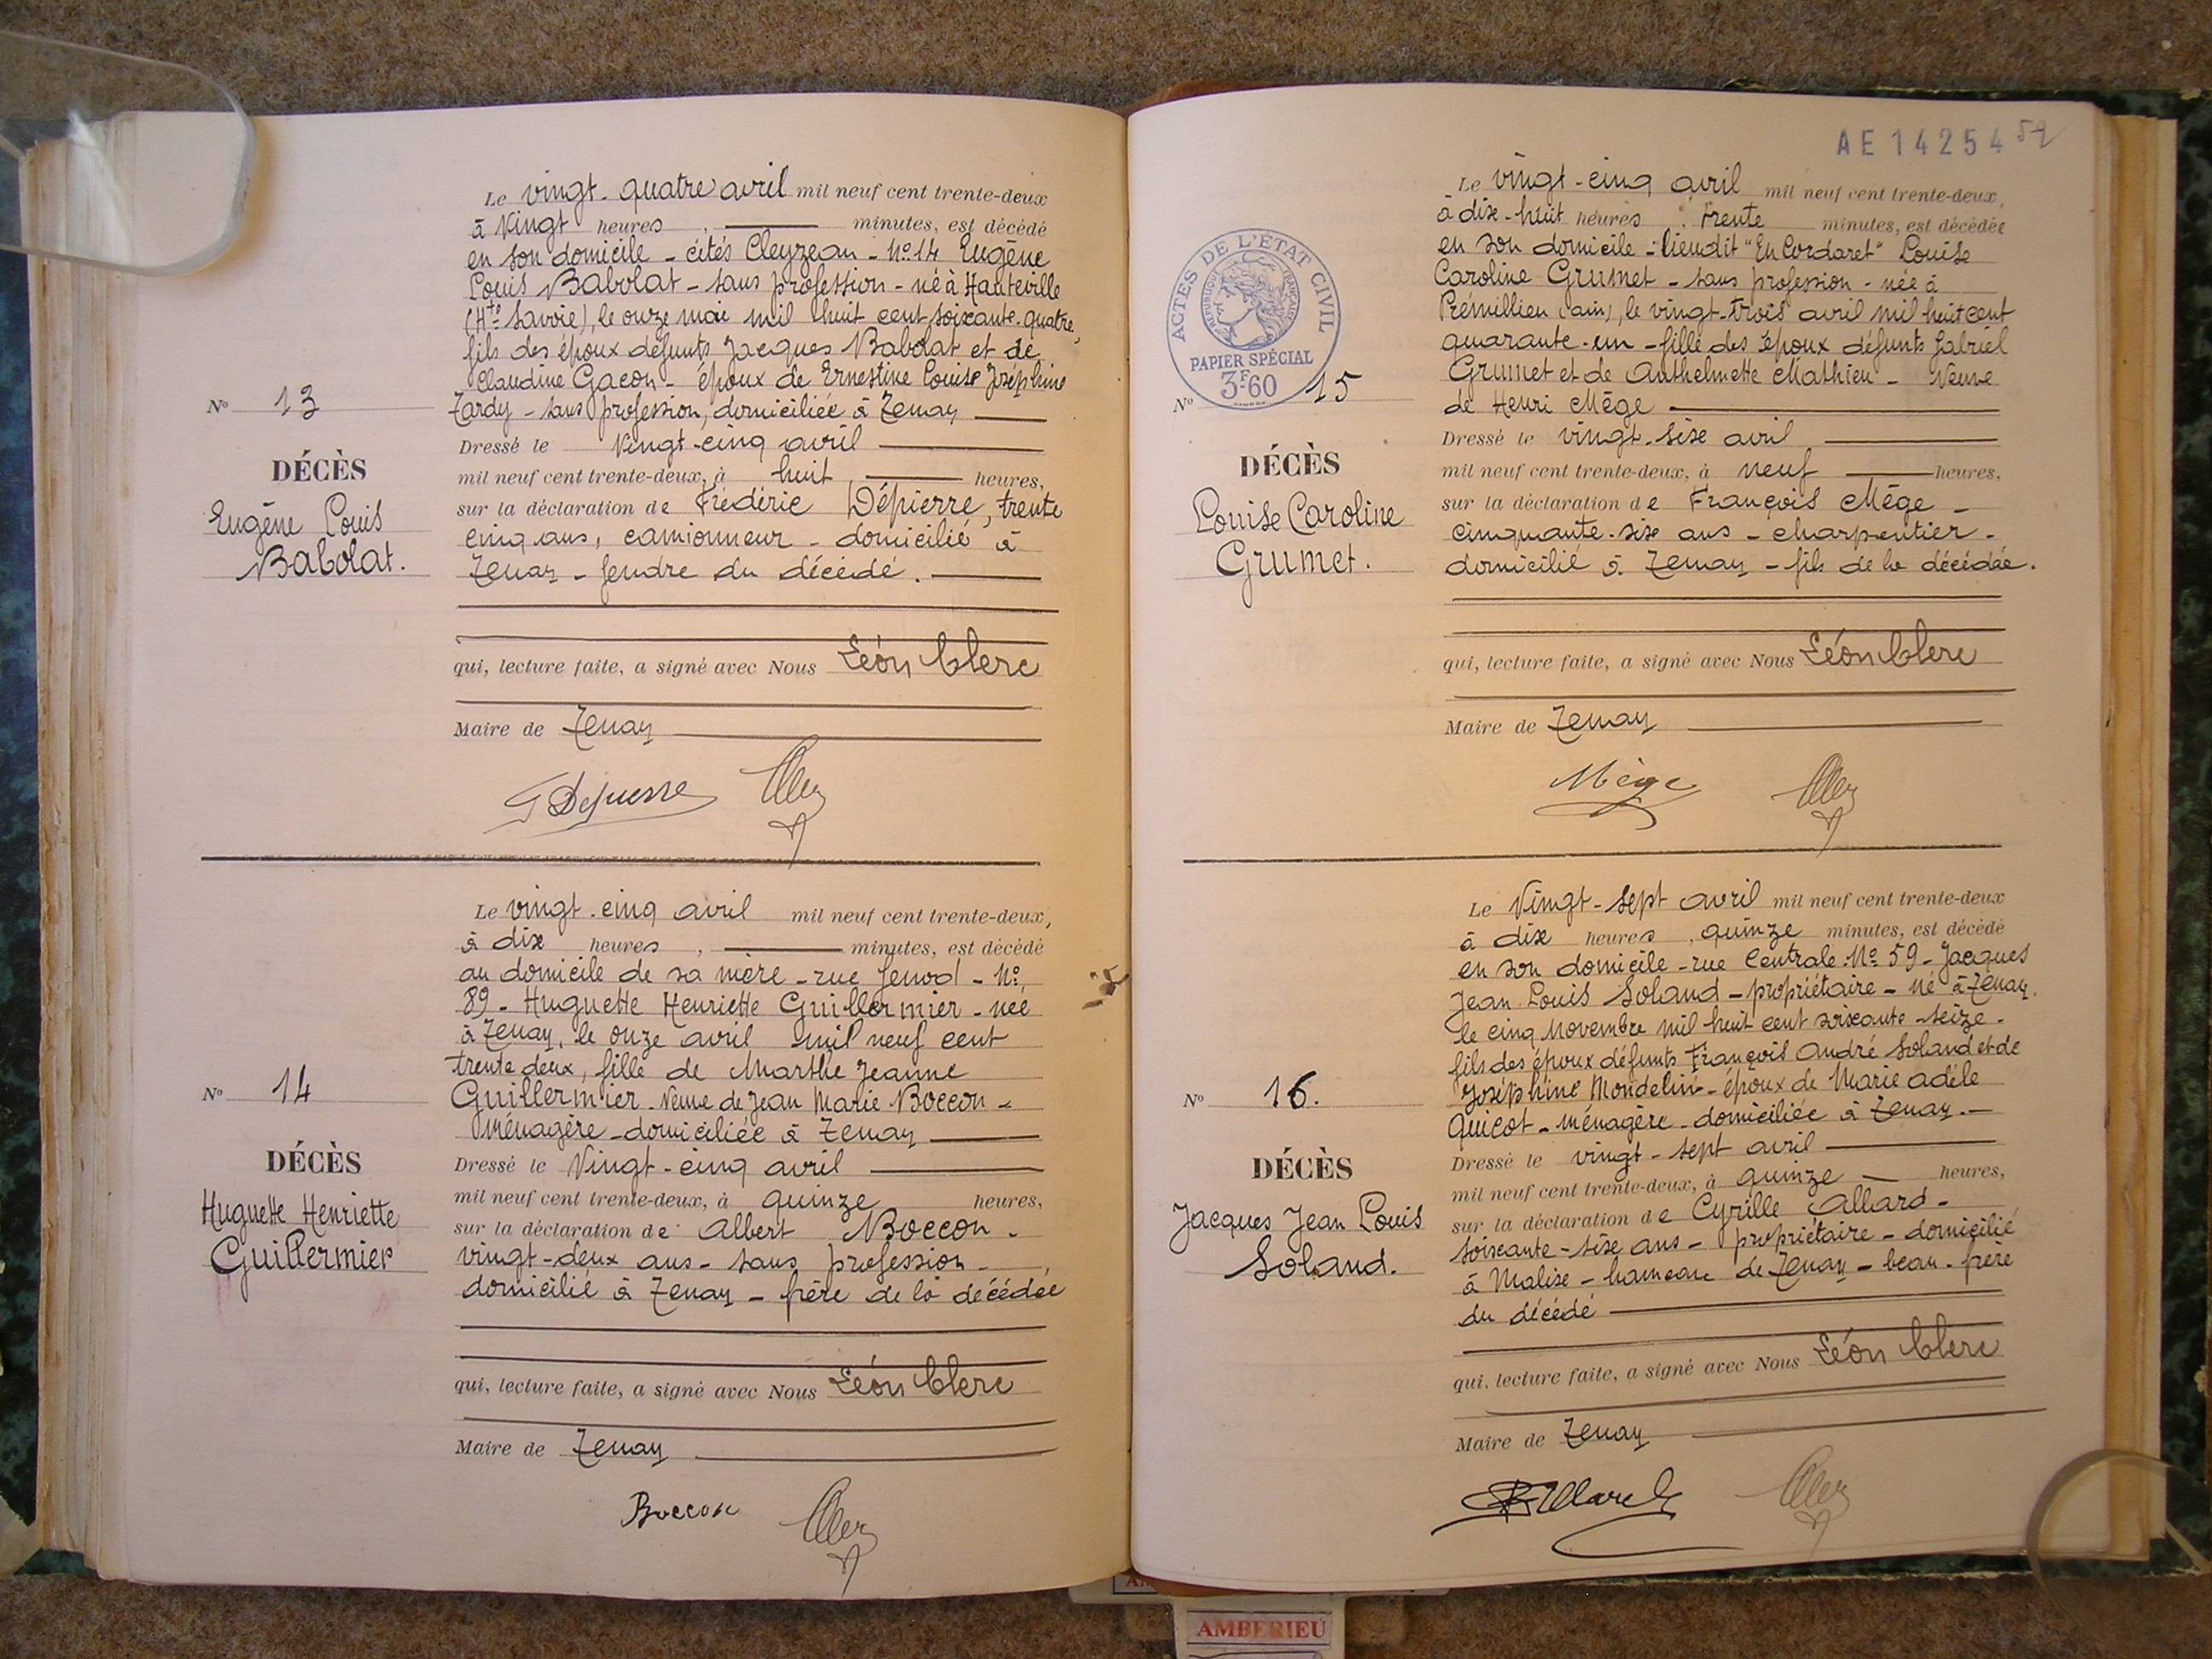 Le vingt-quatre avril mil neuf cent trente-deux
à vingt heures, minutes, est décédé
en son domicile - cités Cleyzeau - N° 14 Eugène
Louis Babolat - sans profession - né à Hauteville
(Hte Savoie), le onze mai mil huit cent soixante-quatre,
fils des époux défunts Jacques Babolat et de
Claudine Gacon - époux de Ernestine Louise Joséphine
Tardy - sans profession, domiciliée à Tenay
N° 13
DÉCÈS
Eugène Louis
Babolat.
Dressé le vingt-cinq avril
mil neuf cent trente-deux, à huit heures,
sur la déclaration de Frédéric Dépierre, trente
cinq ans, camionneur - domicilié à
Tenay - gendre du décédé.
qui, lecture faite, a signé avec Nous Léon Clerc
Maire de Tenay
Le vingt-cinq avril mil neuf cent trente-deux,
à dix heures, minutes, est décédé
au domicile de sa mère - rue Genod - N°
89 - Huguette Henriette Guillermier - née
à Tenay, le onze avril mil neuf cent
trente deux, fille de Marthe Jeanne
Guillermier - Veuve de Jean Marie Boccon -
Ménagère - domiciliée à Tenay
N° 14
DÉCÈS
Huguette Henriette
Guillermier
Dressé le Vingt-cinq avril
mil neuf cent trente-deux, à quinze heures,
sur la déclaration de Albert Boccon -
vingt-deux ans - sans profession -
domicilié à Tenay - frère de la décédée
qui, lecture faite, a signé avec Nous Léon Clerc
Maire de Tenay
Boccon
AE 14254 52
Le vingt-cinq avril mil neuf cent trente-deux,
à dix-huit heures, trente minutes, est décédée
en son domicile - lieudit "En Cordaret" Louise
Caroline Grumet - sans profession - née à
Prémillieu (ain), le vingt-trois avril mil huit cent
quarante-un - fille des époux défunts Gabriel
Grumet et de Anthelmette Mathieu - Veuve
de Henri Mège
ACTES DE L'ÉTAT CIVIL
RÉPUBLIQUE FRANÇAISE
PAPIER SPÉCIAL
3F60
N° 15
DÉCÈS
Louise Caroline
Grumet.
Dressé le vingt-six avril
mil neuf cent trente-deux, à neuf heures,
sur la déclaration de François Mège -
cinquante-six ans - charpentier -
domicilié à Tenay - fils de la décédée.
qui, lecture faite, a signé avec Nous Léon Clerc
Maire de Tenay
Mège
Le Vingt-sept avril mil neuf cent trente-deux
à dix heures, quinze minutes, est décédé
en son domicile - rue Centrale N° 59 - Jacques
Jean Louis Soland - propriétaire - né à Tenay,
le cinq novembre mil huit cent soixante-seize -
fils des époux défunts François André Soland et de
Joséphine Mondelin - époux de Marie adèle
Quicot - ménagère - domiciliée à Tenay. -
N° 16.
DÉCÈS
Jacques Jean Louis
Soland.
Dressé le vingt-sept avril
mil neuf cent trente-deux, à quinze heures,
sur la déclaration de Cyrille Allard -
soixante-six ans - propriétaire - domicilié
à Malix - hameau de Tenay - beau-frère
du décédé
qui, lecture faite, a signé avec Nous Léon Clerc
Maire de Tenay
AMBERIEU